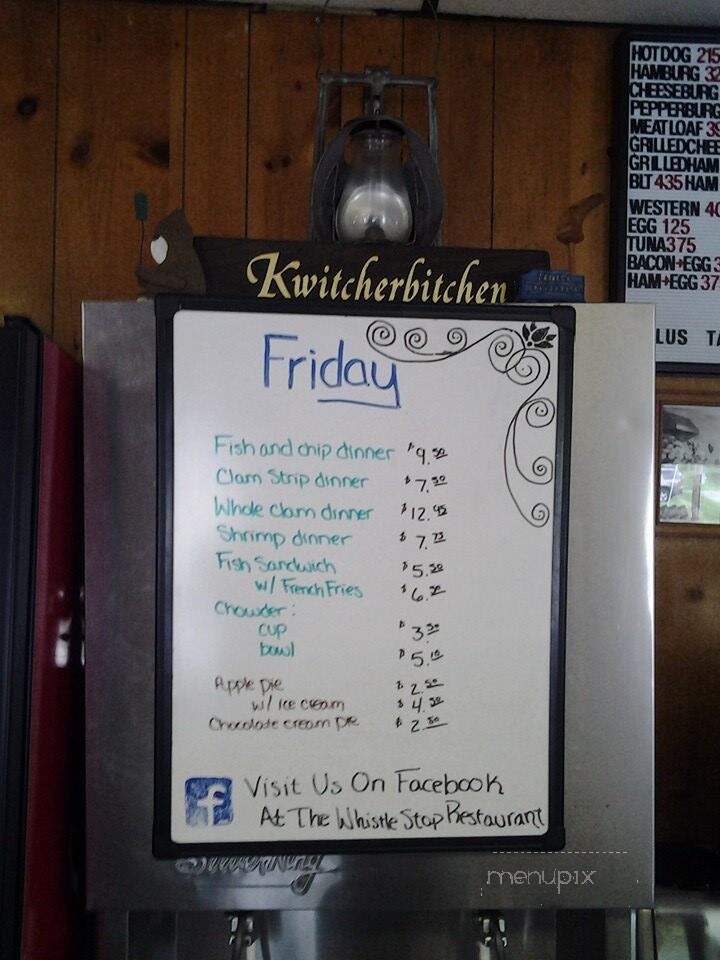 Kwitcherbitchen
Friday
Fish and chip dinner $9.50
Clam Strip dinner $7.50
Whole clam dinner $12.95
Shrimp dinner $7.75
Fish Sandwich $5.50
w/ French Fries $6.50
Chowder:
cup $3.50
bowl $5.10
Apple pie $2.50
w/ ice cream $4.50
Chocolate cream pie $2.50
f Visit Us On Facebook
At The Whistle Stop Restaurant
HOTDOG 215
HAMBURG 32
CHEESEBURG
PEPPERBURG
MEATLOAF 39
GRILLEDCHEE
GRILLEDHAM
BLT 435 HAM
WESTERN 40
EGG 125
TUNA 375
BACON+EGG 3
HAM+EGG 37
LUS TA
menupix